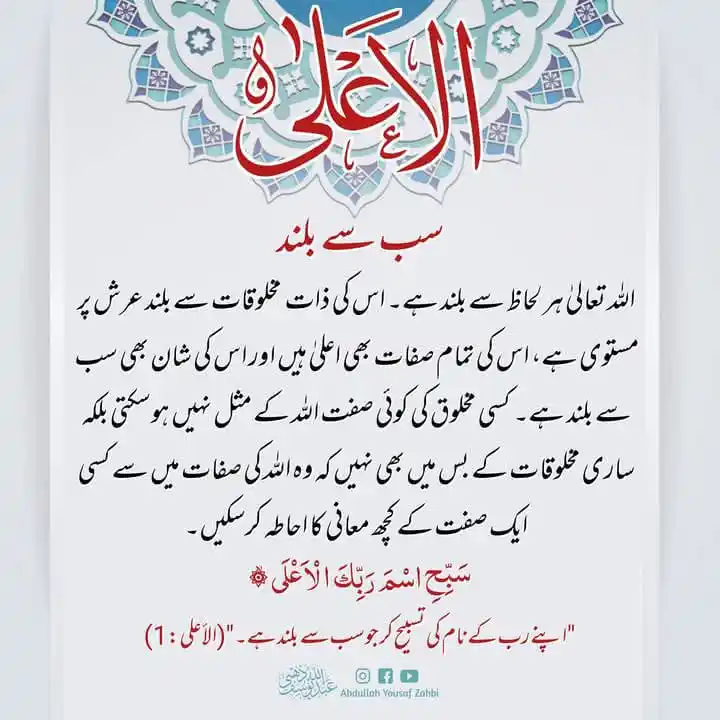 الاَعْلیٰ
سب سے بلند
اللہ تعالیٰ ہر لحاظ سے بلند ہے۔ اس کی ذات مخلوقات سے بلند عرش پر
مستوی ہے، اس کی تمام صفات بھی اعلیٰ ہیں اور اس کی شان بھی سب
سے بلند ہے۔ کسی مخلوق کی کوئی صفت اللہ کے مثل نہیں ہو سکتی بلکہ
ساری مخلوقات کے بس میں بھی نہیں کہ وہ اللہ کی صفات میں سے کسی
ایک صفت کے کچھ معانی کا احاطہ کر سکیں۔
سَبِّحِ اسْمَ رَبِّكَ الْاَعْلَى
"اپنے رب کے نام کی تسبیح کر جو سب سے بلند ہے۔" (الأعلى: 1)
عبداللہ یوسف ذہبی
Abdullah Yousaf Zahbi